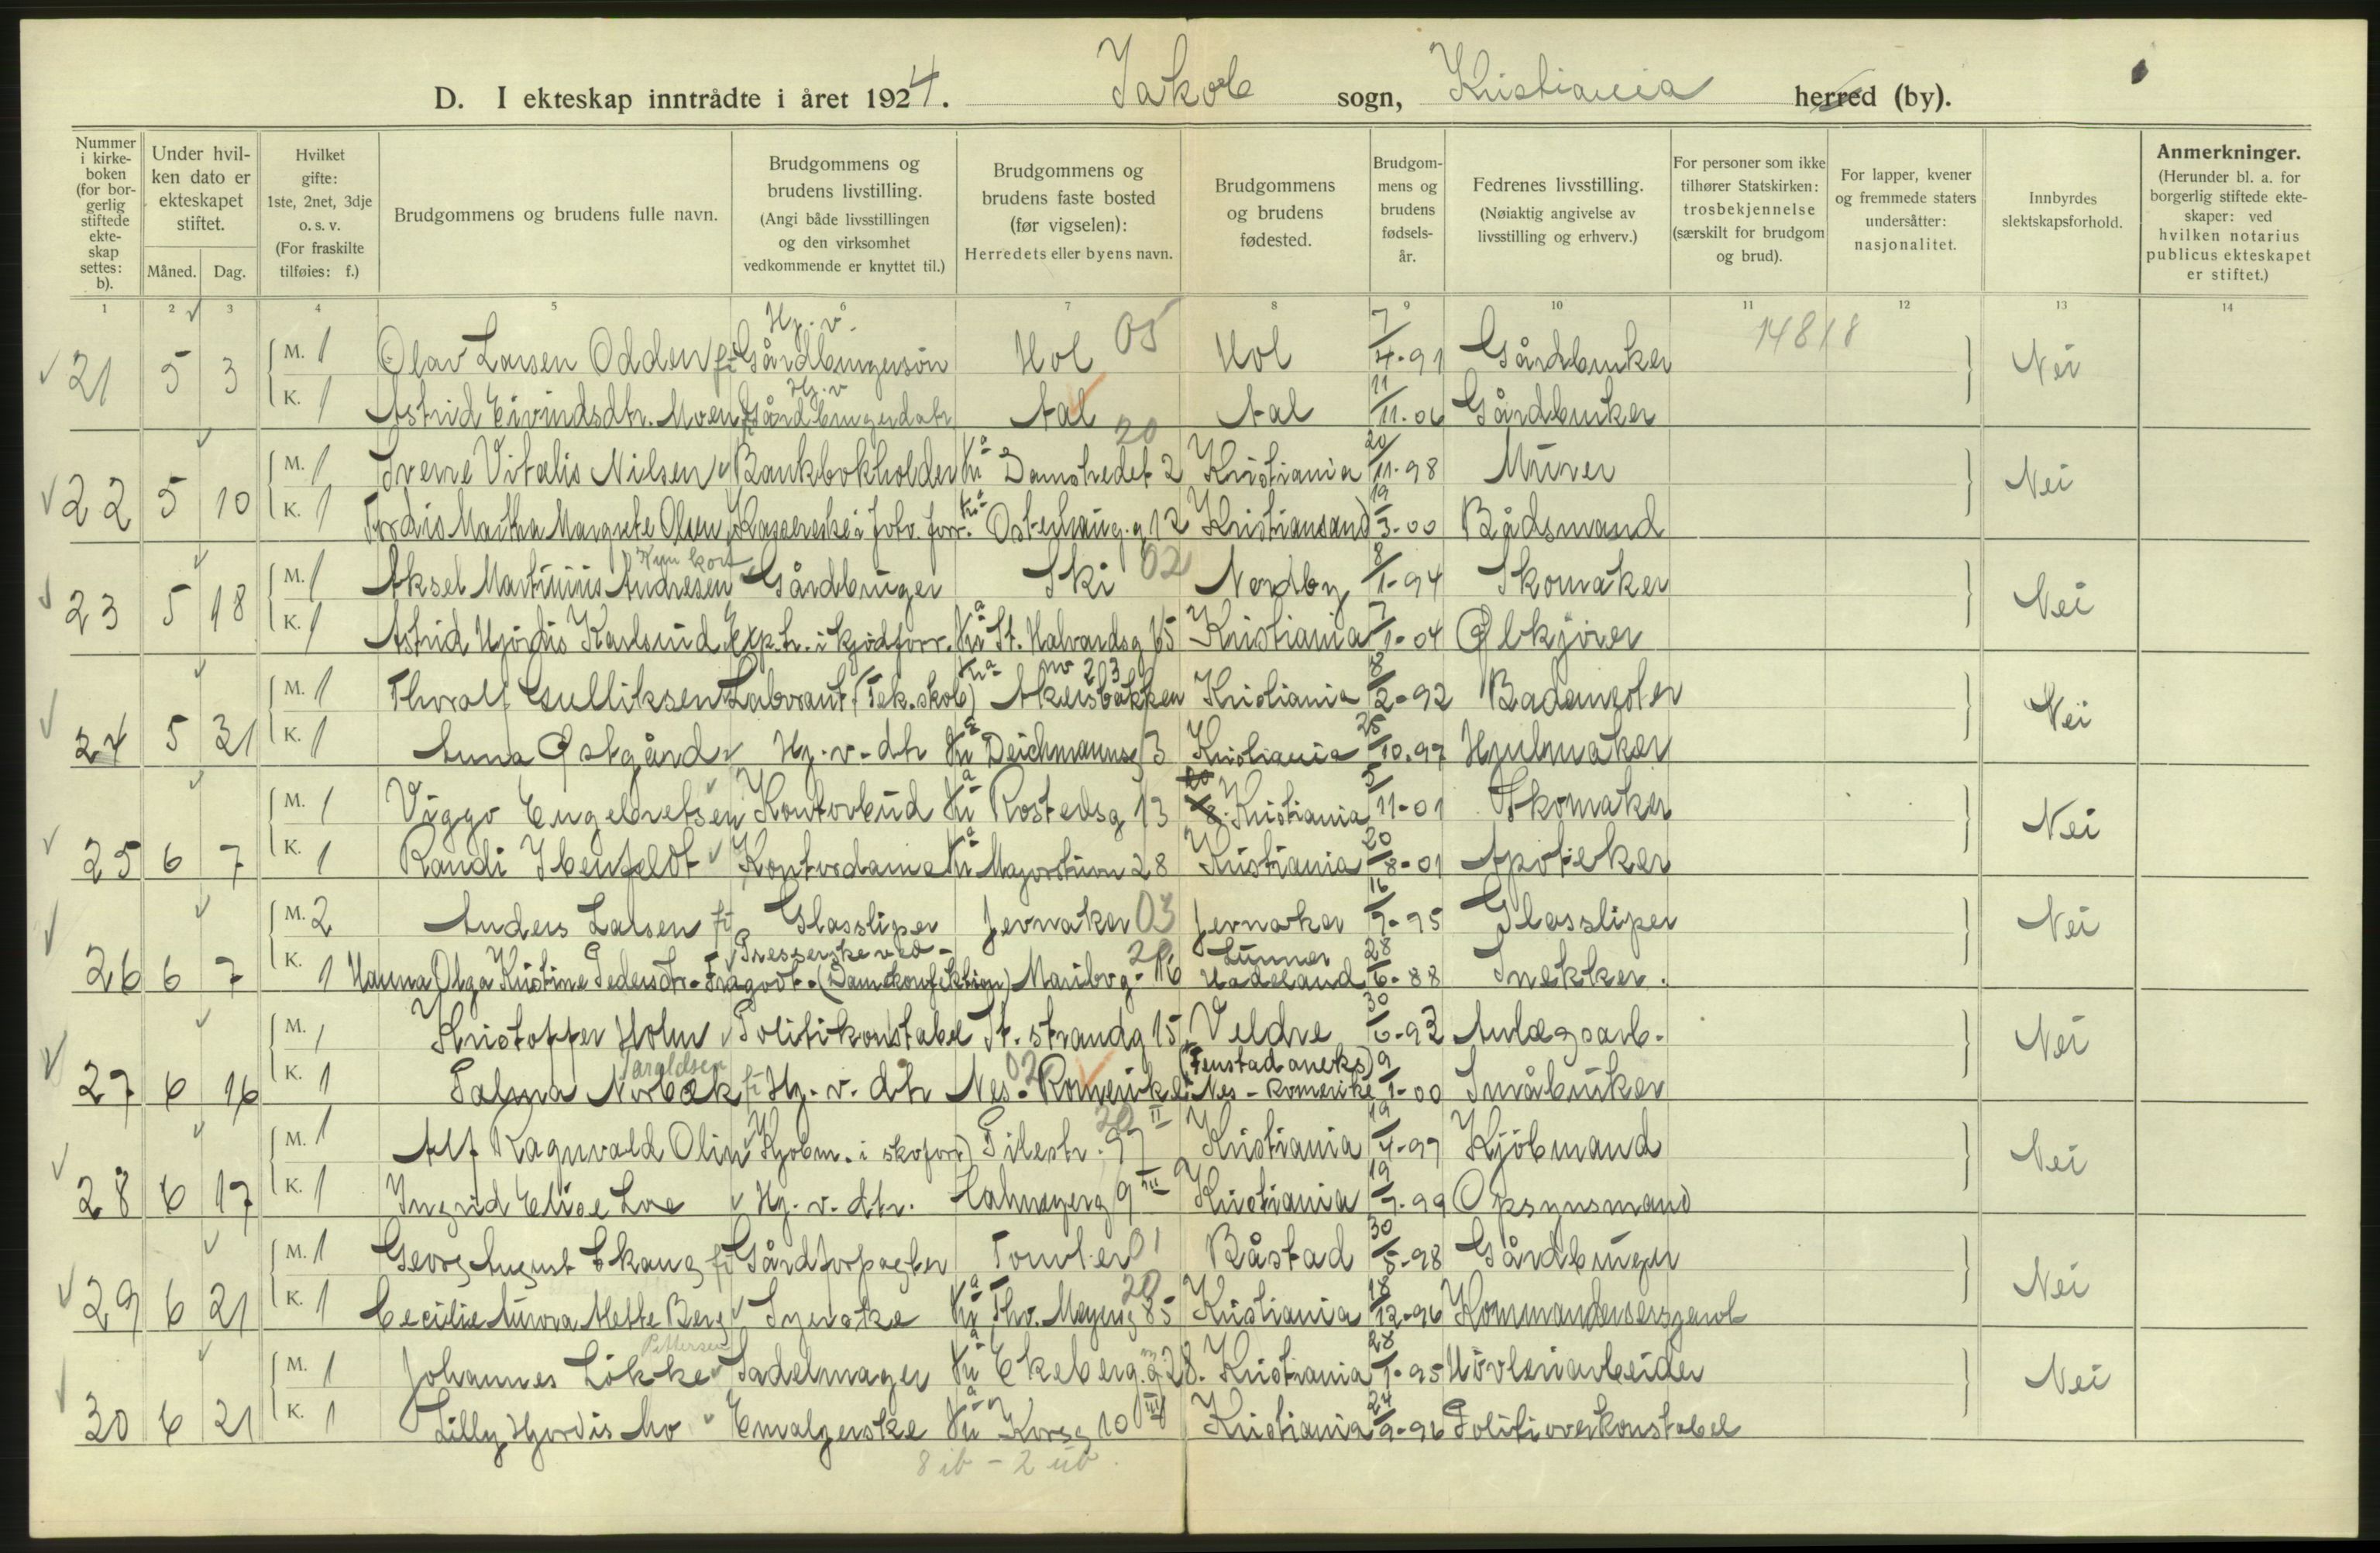 D. I ekteskap inntrådte i året 1924. Jakob sogn, Kristiania herred (by).
Nummer i kirkeboken (for borgerlig stiftede ekteskap settes: b).
Under hvilken dato er ekteskapet stiftet.
Måned. Dag.
Hvilket gifte: 1ste, 2net, 3dje o. s. v. (For fraskilte tilføies: f.)
Brudgommens og brudens fulle navn.
Brudgommens og brudens livstilling. (Angi både livsstillingen og den virksomhet vedkommende er knyttet til.)
Brudgommens og brudens faste bosted (før vigselen): Herredets eller byens navn.
Brudgommens og brudens fødested.
Brudgommens og brudens fødselsår.
Fedrenes livsstilling. (Nøiaktig angivelse av livsstilling og erhverv.)
For personer som ikke tilhører Statskirken: trosbekjennelse (særskilt for brudgom og brud).
For lapper, kvener og fremmede staters undersåtter: nasjonalitet.
Innbyrdes slektskapsforhold.
Anmerkninger. (Herunder bl. a. for borgerlig stiftede ekteskaper: ved hvilken notarius publicus ekteskapet er stiftet.)
1 2 3 4 5 6 7 8 9 10 11 12 13 14
21 5 3 M. 1 Olav Larsen Odden Hg. v. Gårdbrugersøn Hol 05 Hol 7/4-91 Gårdbruker 14818 Nei
K. 1 Astrid Eivindsdtr. Moen Hg. v Gårdbrugerdatr Aal Aal 11/11-06 Gårdbruker
22 5 10 M. 1 Sverre Vitalis Nielsen Bankbokholder Kra Damstredet 2 20 Kristiania 20/11-98 Murer Nei
K. 1 Tordis Martha Margrete Olsen Kassererske i forr. Kra Osterhausg. 12 Kristiansand 19/3-00 Bådsmand
23 5 18 M. 1 Aksel Martinius Andresen Kun kort Gårdbruger Ski 02 Nordby 8/1-94 Skomaker Nei
K. 1 Astrid Hjørdis Karlsrud Exp.tr. i kjødforr. Kra St. Halvardsg 65 Kristiania 7/1-04 Ølkjører
24 5 31 M. 1 Thoralf Gulliksen Laborant (Tek. skole) Kra Akersbakken Kristiania 8/2-92 Bademester Nei
K. 1 Anna Østgård Hg. v. dtr Kra Deichmannsg 3 Kristiania 25/10.97 Hjulmaker
25 6 7 M. 1 Viggo Engebretsen Kontorbud Kra Rostedsg 13 Kristiania 5/11-01 Skomaker Nei
K. 1 Randi Ibenfeldt Kontordame Kra Majorstuvn 28 Kristiania 20/8-01 Apoteker
26 6 7 M. 2 Anders Larsen Glassliper Jevnaker 03 Jevnaker 16/9-95 Glassliper Nei
K. 1 Hanna Olga Kristine Pedersdtr. Fragodt Presserske ved (Damekonfektion) Maribog. 16 Lunner Hadeland 28/6-88 Snekker.
27 6 16 M. 1 Kristoffer Holm Politikonstabel St. strandg 15 Veldre 30/6-93 Anlægsarb. Nei
K. 1 Salma Norbæk Taraldsen Hg. v. dtr Nes. Romerike 02 (Fenstad aneks) Nes - Romerike 9/1-00 Småbruker
28 6 17 M. 1 Alf Ragnvald Olin Kjøbm. i skoforr) Pilestr. 97 II 20 Kristiania 19/4-97 Kjøbmand Nei
K. 1 Ingrid Elise Loe Hg. v. dtr. Calmeyerg 9 III Kristiania 19/9-99 Opsynsmand
29 6 21 M. 1 Georg August Skaug Gårdforpagter Tomter 01 Båstad 30/5-98 Gårdbruger Nei
K. 1 Cecilie Aurora Mette Berg Syerske Kra Thv. Meyersg 85 20 Kristiania 18/12-96 Kommandersersjant
30 6 21 M. 1 Johannes Løkke Pettersen Sadelmager Kra Ekeberg.g 28. Kristiania 28/1-95 Høvleriarbeider Nei
K. 1 Lilly Hjørdis Mo Emalgerske Kra Korsg 10 III Kristiania 24/9-96 Politioverkonstabel
8 ib - 2 ub.